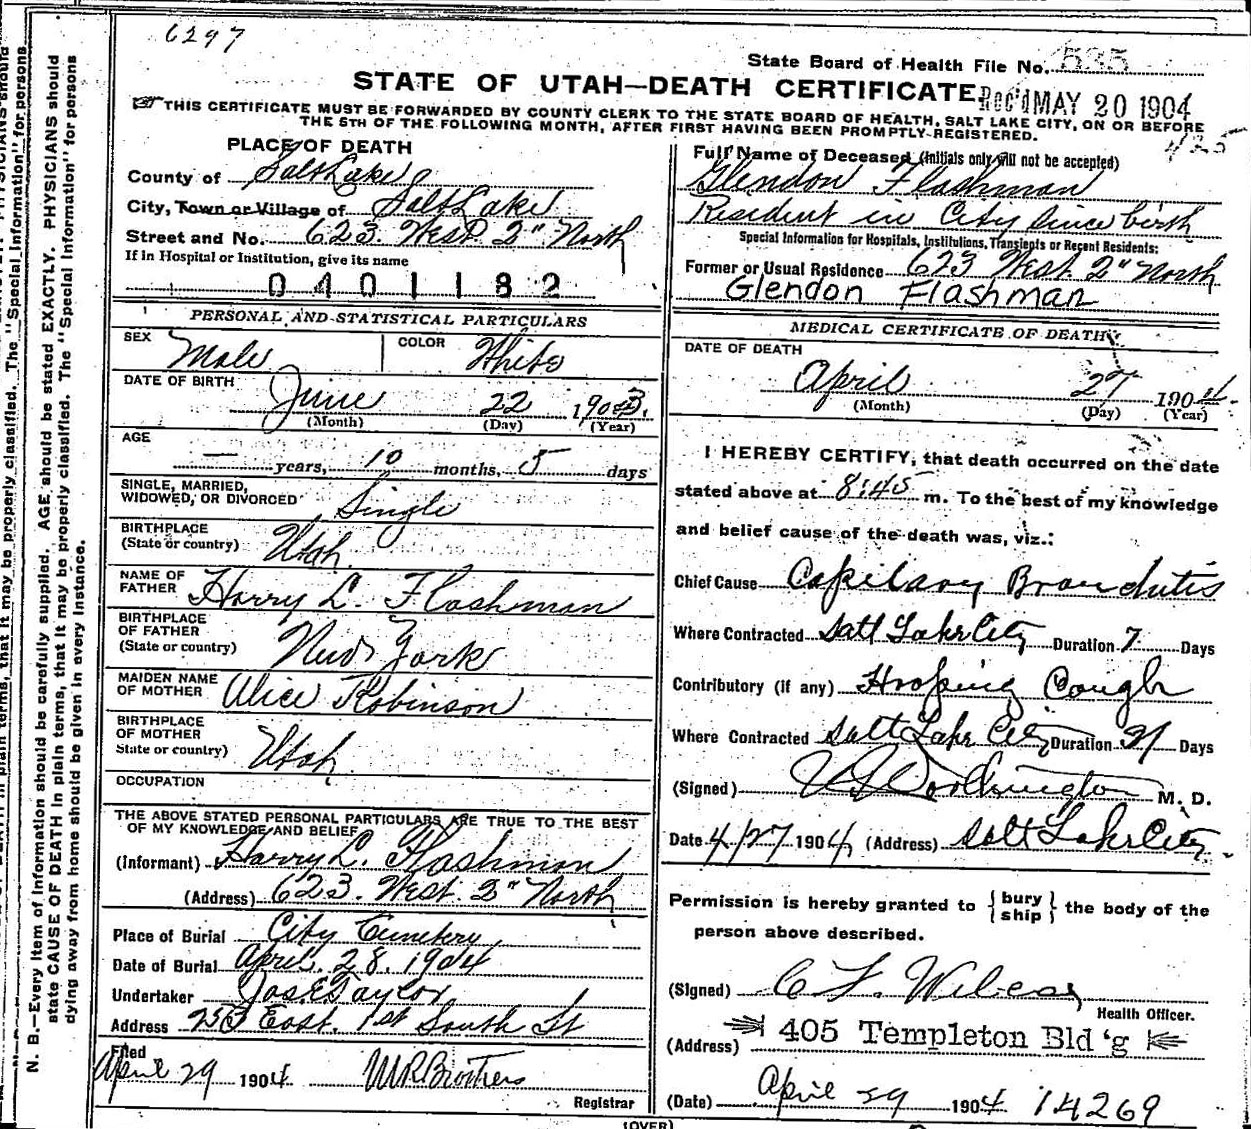 6297
State Board of Health File No. 535
STATE OF UTAH—DEATH CERTIFICATE
Rec'd MAY 20 1904
THIS CERTIFICATE MUST BE FORWARDED BY COUNTY CLERK TO THE STATE BOARD OF HEALTH, SALT LAKE CITY, ON OR BEFORE
THE 5TH OF THE FOLLOWING MONTH, AFTER FIRST HAVING BEEN PROMPTLY REGISTERED.
425
PLACE OF DEATH
County of Salt Lake
City, Town or Village of Salt Lake
Street and No. 623. West 2" North
If in Hospital or Institution, give its name
0401182
Full Name of Deceased (Initials only will not be accepted)
Glendon Flashman
Resident in City since birth
Special Information for Hospitals, Institutions, Transients or Recent Residents:
Former or Usual Residence 623 West 2" North
Glendon Flashman
PERSONAL AND STATISTICAL PARTICULARS
SEX Male COLOR White
DATE OF BIRTH June 22 1903.
(Month) (Day) (Year)
AGE
— years, 10 months, 5 days
SINGLE, MARRIED,
WIDOWED, OR DIVORCED Single
BIRTHPLACE
(State or country) Utah
NAME OF
FATHER Harry L. Flashman
BIRTHPLACE
OF FATHER
(State or country) New York
MAIDEN NAME
OF MOTHER Alice Robinson
BIRTHPLACE
OF MOTHER
State or country) Utah
OCCUPATION
THE ABOVE STATED PERSONAL PARTICULARS ARE TRUE TO THE BEST
OF MY KNOWLEDGE AND BELIEF
(Informant) Harry L. Flashman
(Address) 623. West. 2" North
Place of Burial City Cemetery
Date of Burial April. 28. 1904
Undertaker Jos E Taylor
Address 253 East. 1st South St
Filed
April 29 1904 M R Brothers
Registrar
MEDICAL CERTIFICATE OF DEATH
DATE OF DEATH
April 27 1904.
(Month) (Day) (Year)
I HEREBY CERTIFY, that death occurred on the date
stated above at 8:45 m. To the best of my knowledge
and belief cause of the death was, viz.:
Chief Cause Capilary Bronchitis
Where Contracted Salt Lake City Duration 7 Days
Contributory (if any) Hooping Cough
Where Contracted Salt Lake City Duration 21 Days
(Signed) Worthington M. D.
Date 4/27 1904 (Address) Salt Lake City
Permission is hereby granted to { bury
ship } the body of the
person above described.
(Signed) C F. Wilcox
Health Officer.
(Address) 405 Templeton Bld'g
(Date) April 29 1904 14269
(OVER)
N. B.—Every item of information should be carefully supplied. AGE should be stated EXACTLY. PHYSICIANS should
state CAUSE OF DEATH in plain terms, that it may be properly classified. The "Special Information" for persons
dying away from home should be given in every instance.